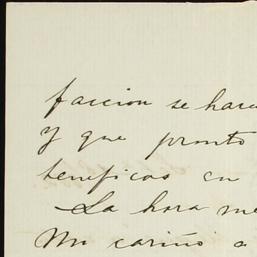 faccion se hara
y que pronto
beneficos en
La hora me
Mi cariño a